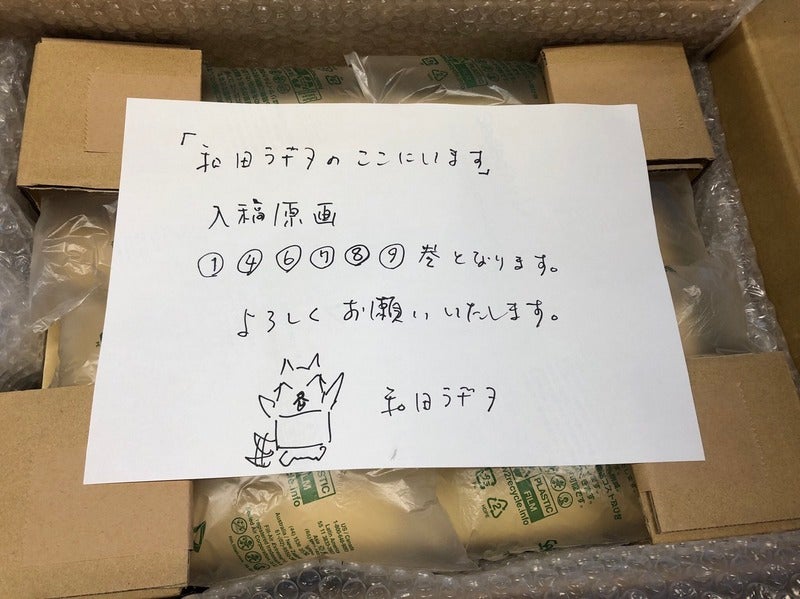 「和田ラヂヲのここにいます」
入稿原画
①④⑥⑦⑧⑨巻となります。
よろしくお願いいたします。
和田ラヂヲ
PLASTIC
FILM
PLASTIC
FILM